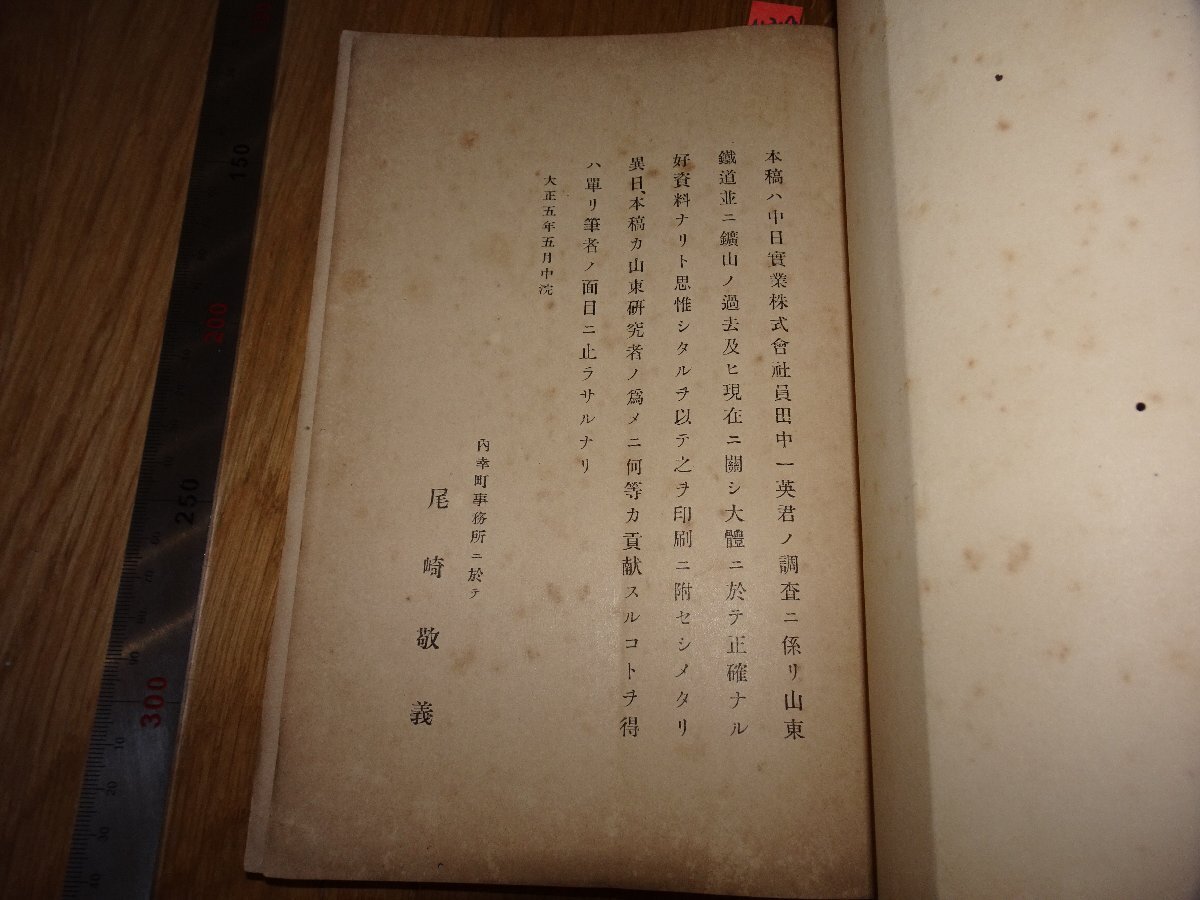 本稿ハ中日實業株式會社員田中一英君ノ調査ニ係リ山東
鐵道並ニ鑛山ノ過去及ヒ現在ニ關シ大體ニ於テ正確ナル
好資料ナリト思惟シタルヲ以テ之ヲ印刷ニ附セシメタリ
異日、本稿カ山東硏究者ノ爲メニ何等カ貢献スルコトヲ得
ハ單リ筆者ノ面目ニ止ラサルナリ
大正五年五月中浣
內幸町事務所ニ於テ
尾崎敬義
150
200
250
300
10
20
30
40